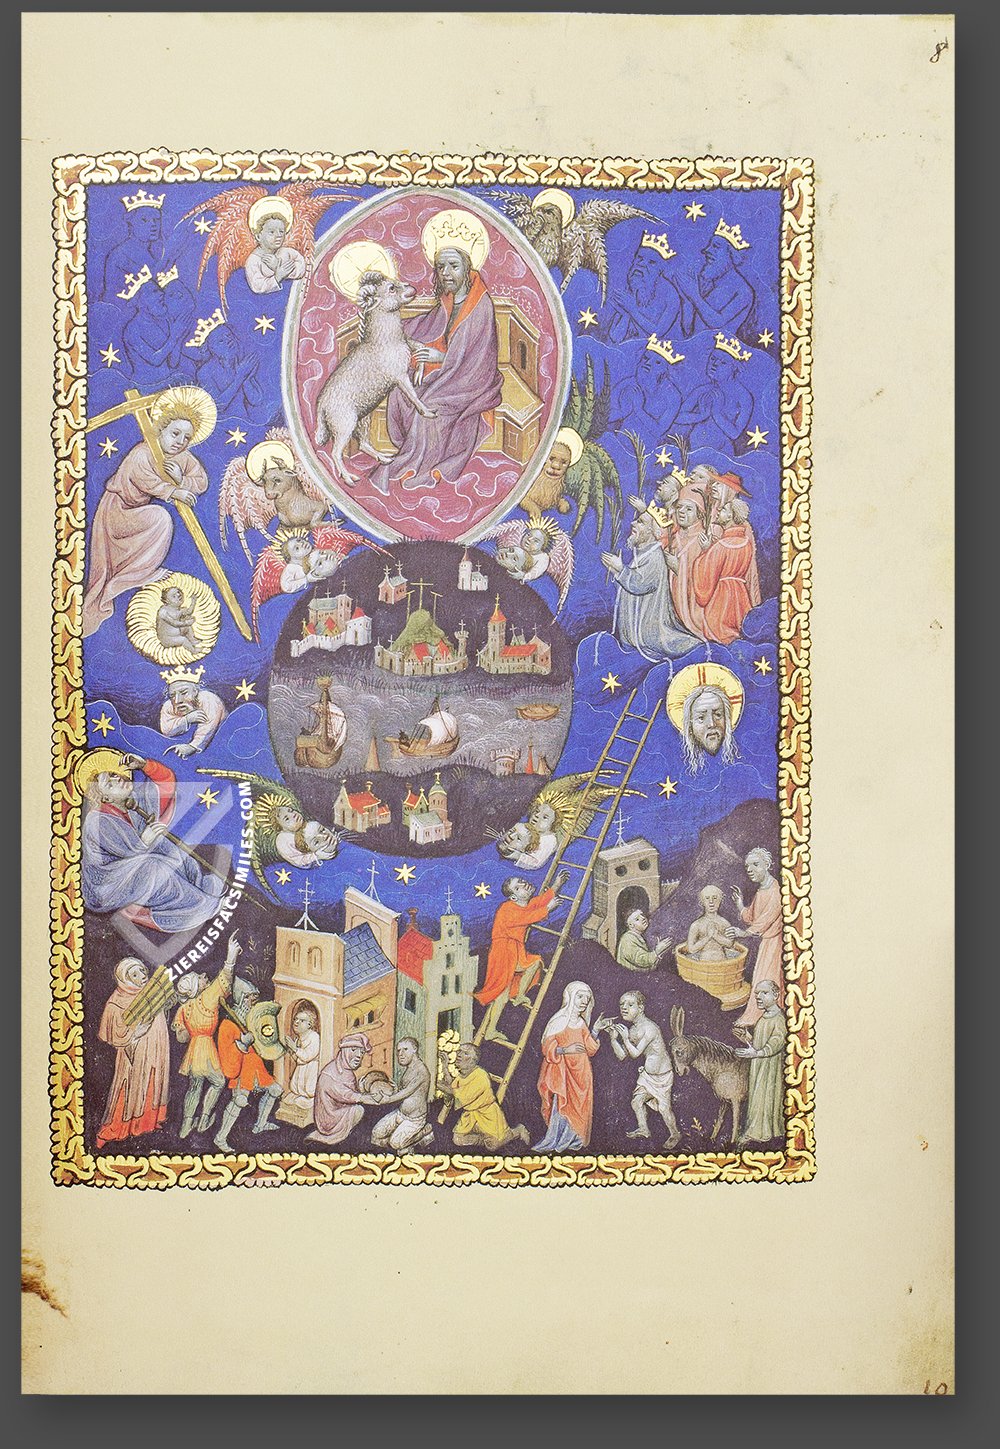 8
ZIEREISFACSIMILES.COM
10